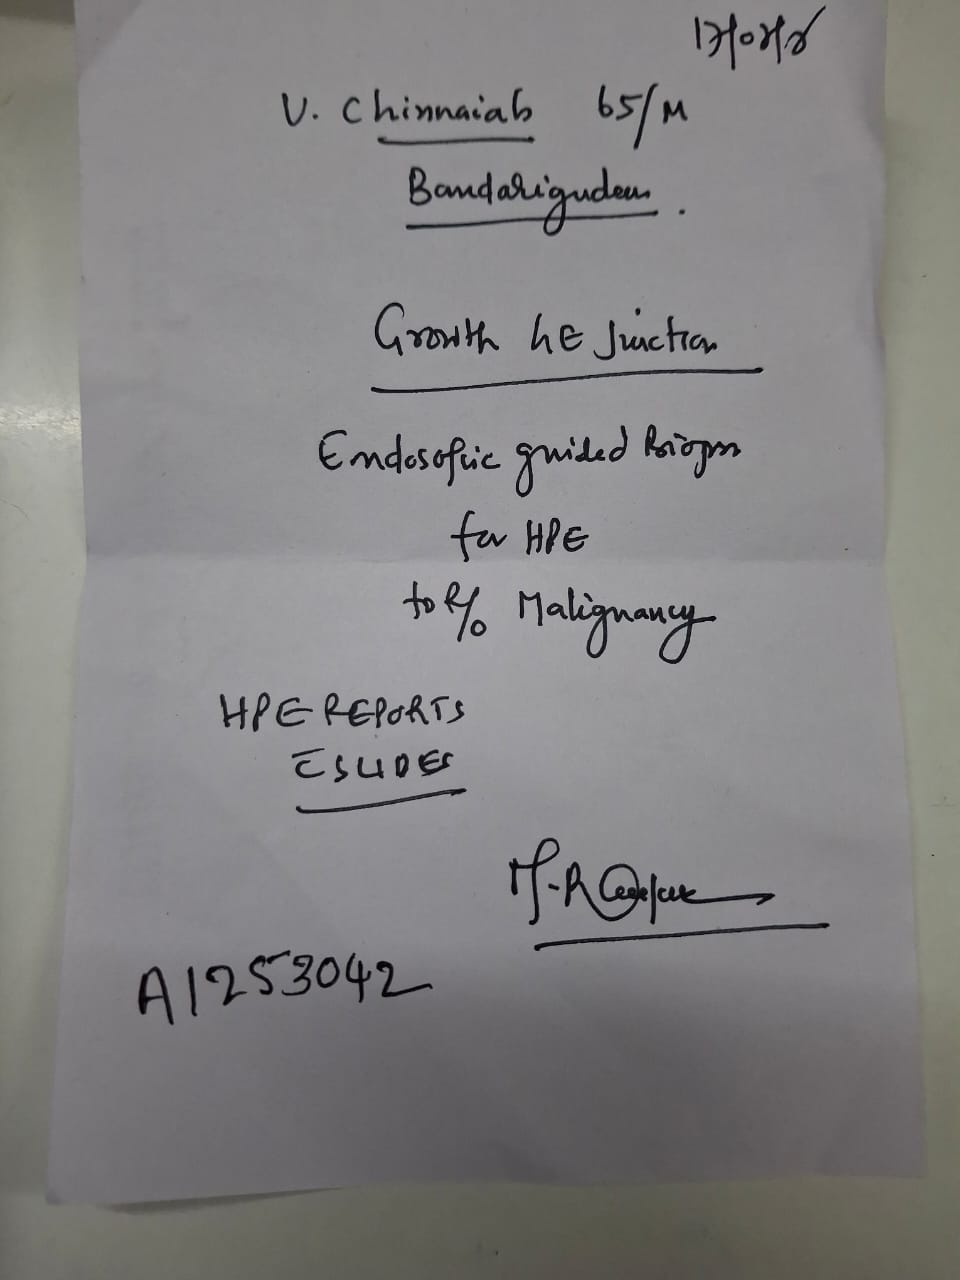 V. Chinnaiah 65/M
Bandarigudem.
Growth GE Junction
Endosopic guided Biopsy
for HPE
to R/o Malignancy
HPE REPORTS
c̄ SLIDES
A1253042